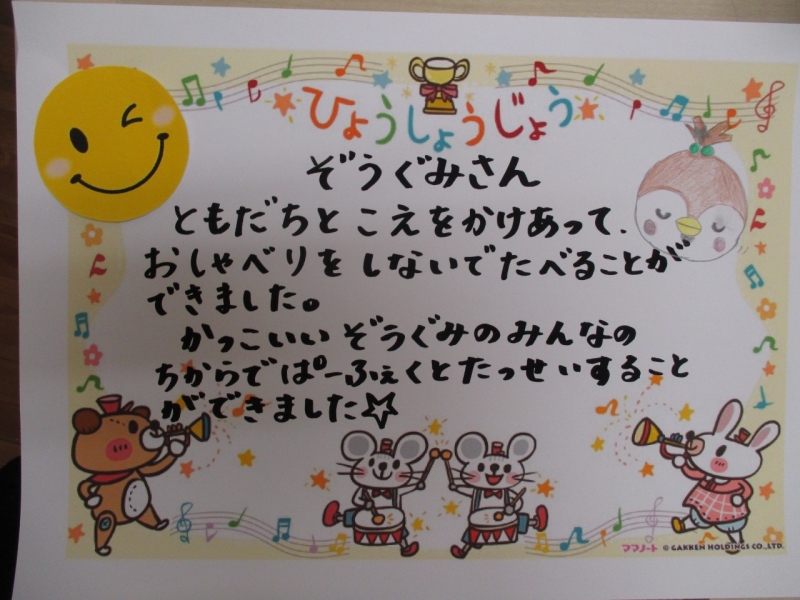 ひょうしょうじょう
ぞうぐみさん
ともだちと こえをかけあって.
おしゃべりを しないでたべることが
できました。
かっこいい ぞうぐみのみんなの
ちからでぱーふぇくとたっせいすること
ができました☆
ママノート © GAKKEN HOLDINGS CO.,LTD.